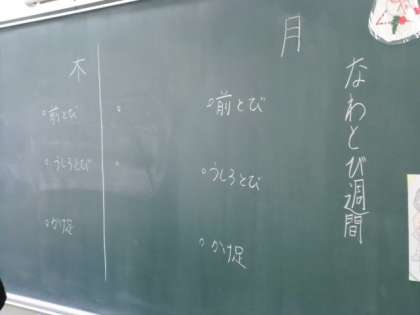 なわとび週間
月
。前とび
。うしろとび
。かけ足
木
。前とび
。うしろとび
。かけ足